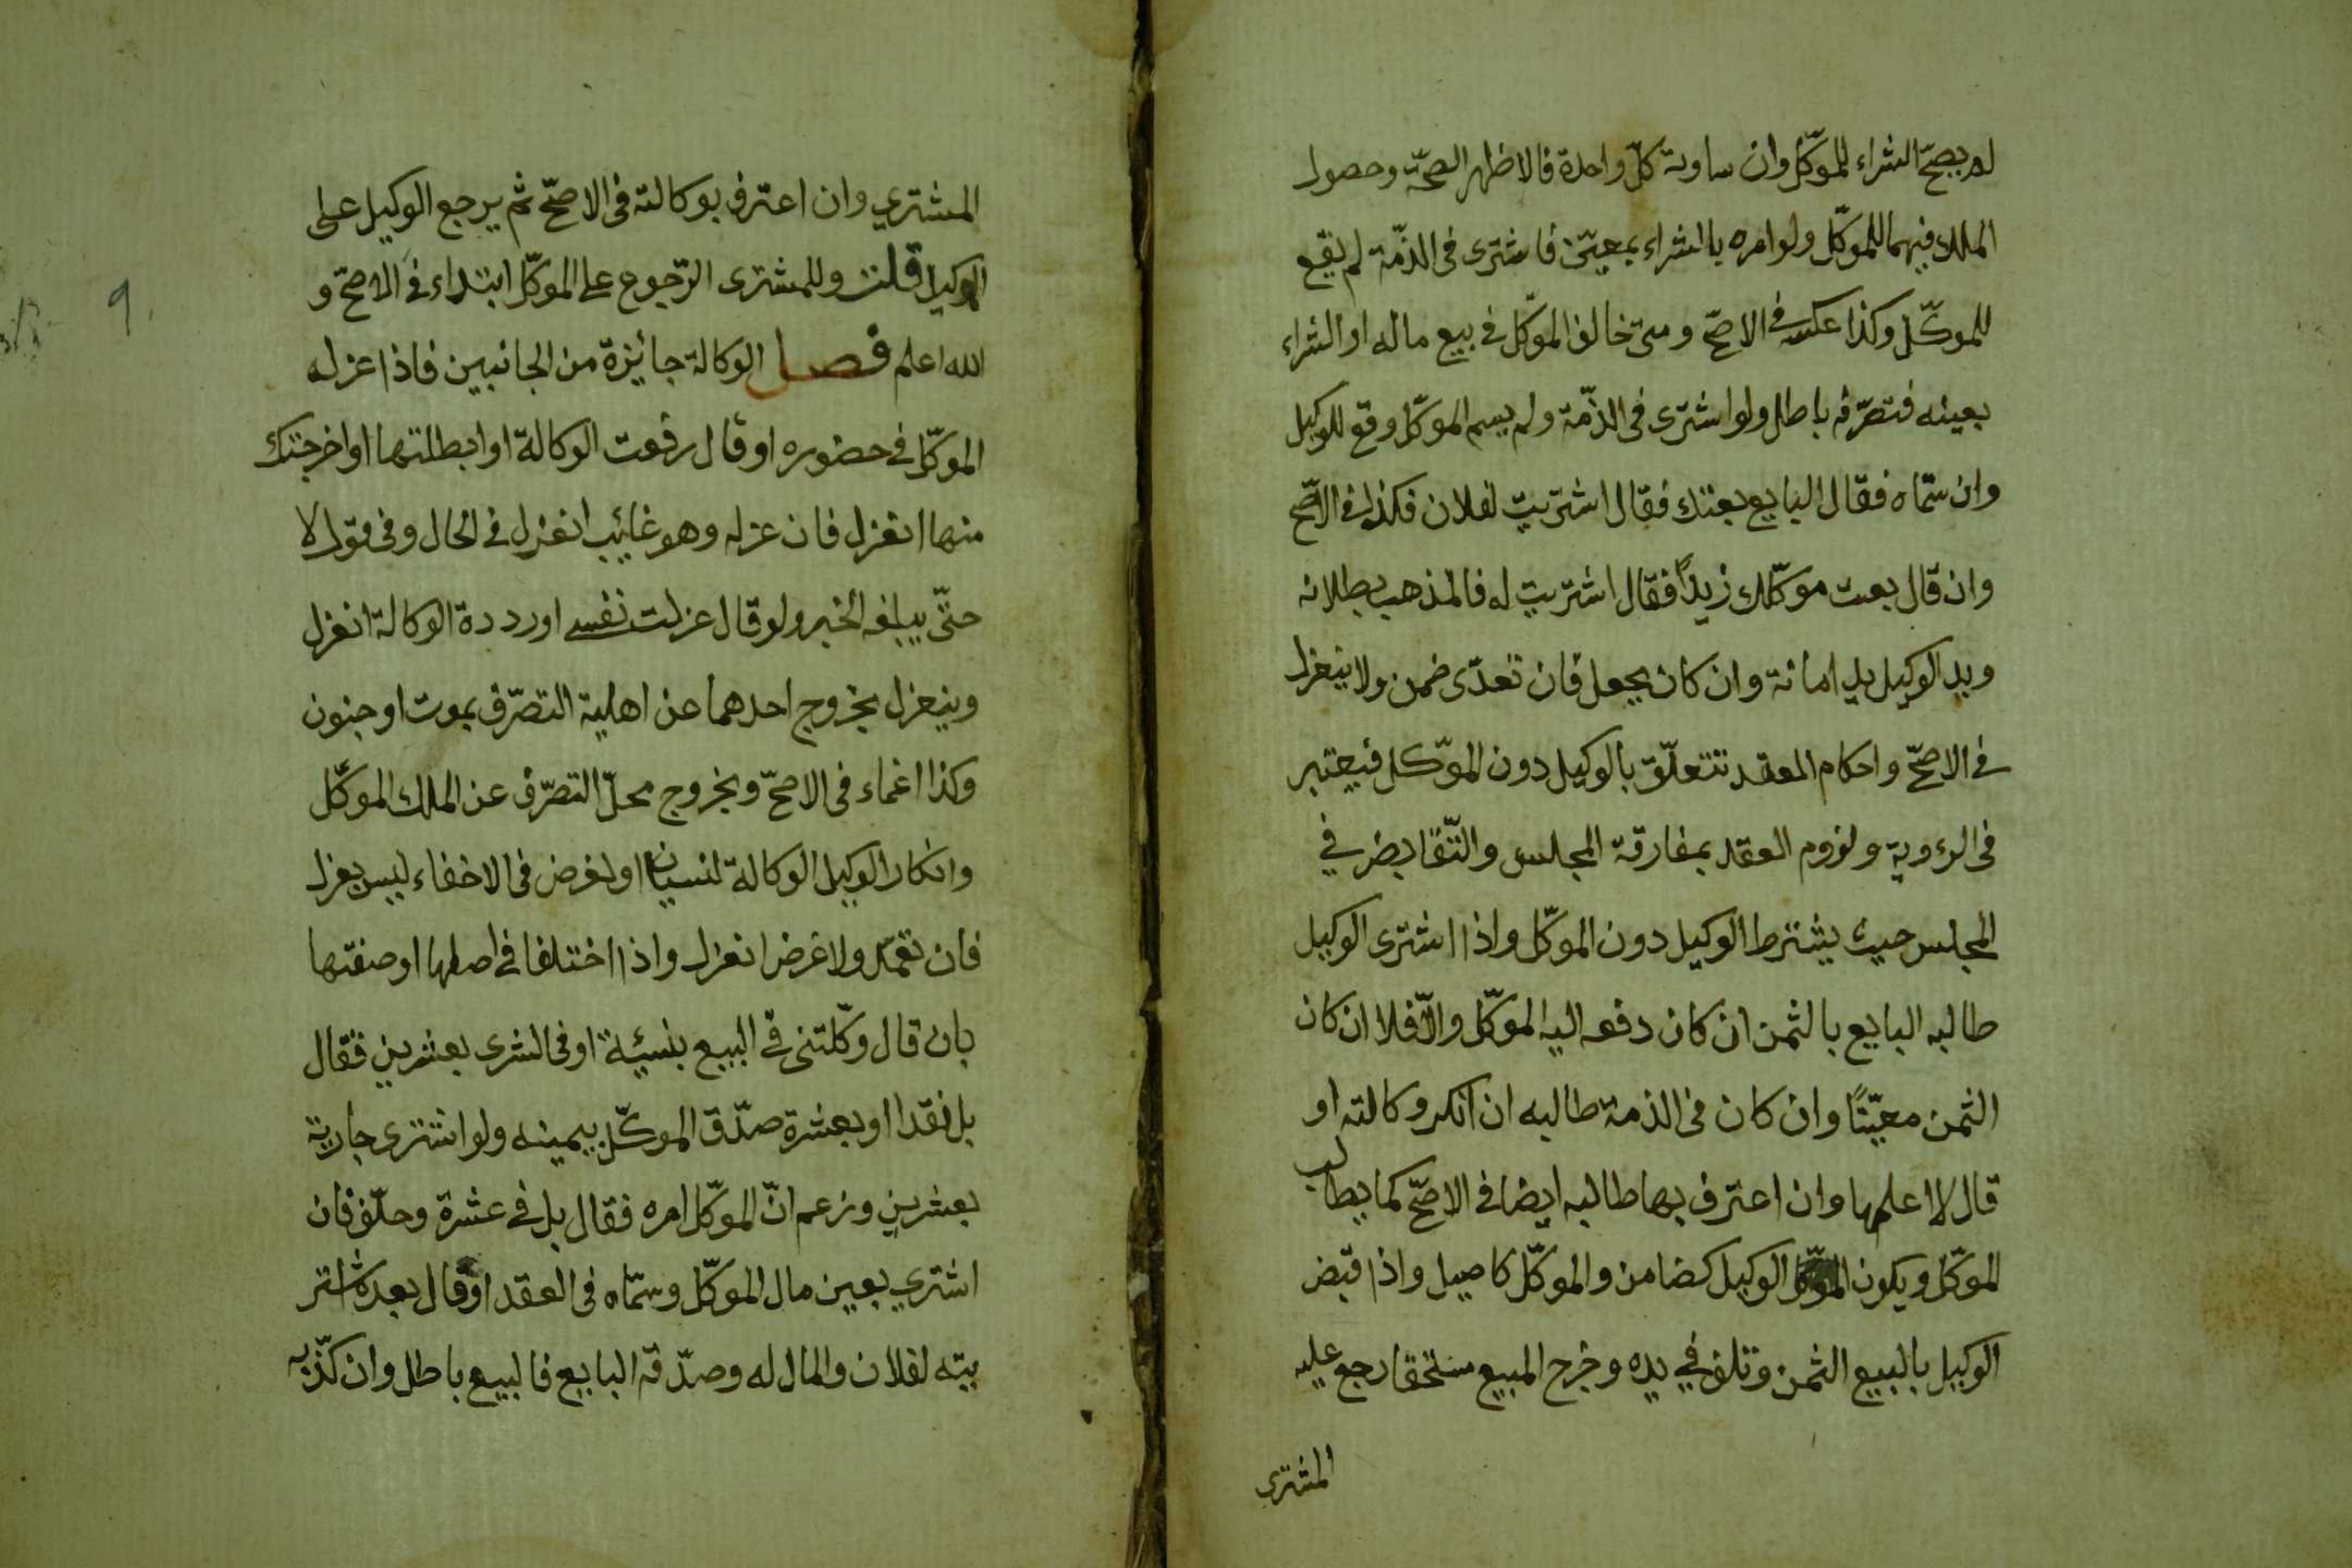 لم يصحّ الشراء للموكّل وان ساوته كلّ واحدة فالاظهر الصحّة وحصول
الملك فيهما للموكّل ولو امره بالشراء بمعيّن فاشترى فى الذمّة لم يقع
للموكّل وكذا عكسه فى الاصحّ ومتى خالف الموكّل فى بيع ماله او الشراء
بعينه فتصرّفه باطل ولو اشترى فى الذمّة ولم يسم الموكّل وقع للوكيل
وان سمّاه فقال البايع بعتك فقال اشتريت لفلان فكذا فى الاصحّ
وان قال بعت موكّلك زيداً فقال اشتريت له فالمذهب بطلانه
ويد الوكيل يد امانة وان كان بجعل فان تعدّى ضمن ولا ينعزل
فى الاصحّ واحكام العقد تتعلّق بالوكيل دون الموّكل فيعتبر
فى الرءوية ولزوم العقد بمفارقة المجلس والتّقابض في
المجلس حيث يشترط الوكيل دون الموكّل واذا اشترى الوكيل
طالبه البايع بالثمن ان كان دفعه اليه الموكّل والّا فلا ان كان
الثمن معيّنًا وان كان فى الذمة طالبه ان انكر وكالته او
قال لا اعلمها وان اعترف بها طالبه ايضا فى الاصحّ كما يطالب
الموكّل ويكون الوكيل كضامن والموكّل كاصيل واذا قبض
الوكيل بالبيع الثمن وتلف في يده وخرج المبيع مستحقا رجع عليه
المشترى
المشتري وان اعترف بوكالته فى الاصحّ ثم يرجع الوكيل على
الوكيل قلت وللمشترى الرّجوع على الموكّل ابتداء فى الاصحّ و
الله اعلم فصل الوكالة جائزة من الجانبين فاذا عزله
الموكّل فى حضوره او قال رفعت الوكالة او ابطلتها او اخرجتك
منها انعزل فان عزله وهو غائب انعزل فى الحال وفى قول لا
حتّى يبلغه الخبر ولو قال عزلت نفسى او رددة الوكالة انعزل
وينعزل بخروج احدهما عن اهلية التصرّف بموت او جنون
وكذا اغماء فى الاصحّ وبخروج محلّ التصرّف عن الملك الموكّل
وانكار الوكيل الوكالة لنسيان او لغرض فى الاخفاء ليس بعزل
فان تعمّد ولا غرض انعزل واذا اختلفا فى اصلها او صفتها
بان قال وكّلتنى فى البيع بنسيئة او فى الشرى بعشرين فقال
بل نقدا او بعشرة صدّق الموكّل بيمينه ولو اشترى جارية
بعشرين وزعم انّ الموكّل امره فقال بل فى عشرة وحلّف فان
اشتري بعين مال الموكّل وسمّاه فى العقد او قال بعده اشتر
يته لفلان والمال له وصدّقه البايع فالبيع باطل وان كذّبه